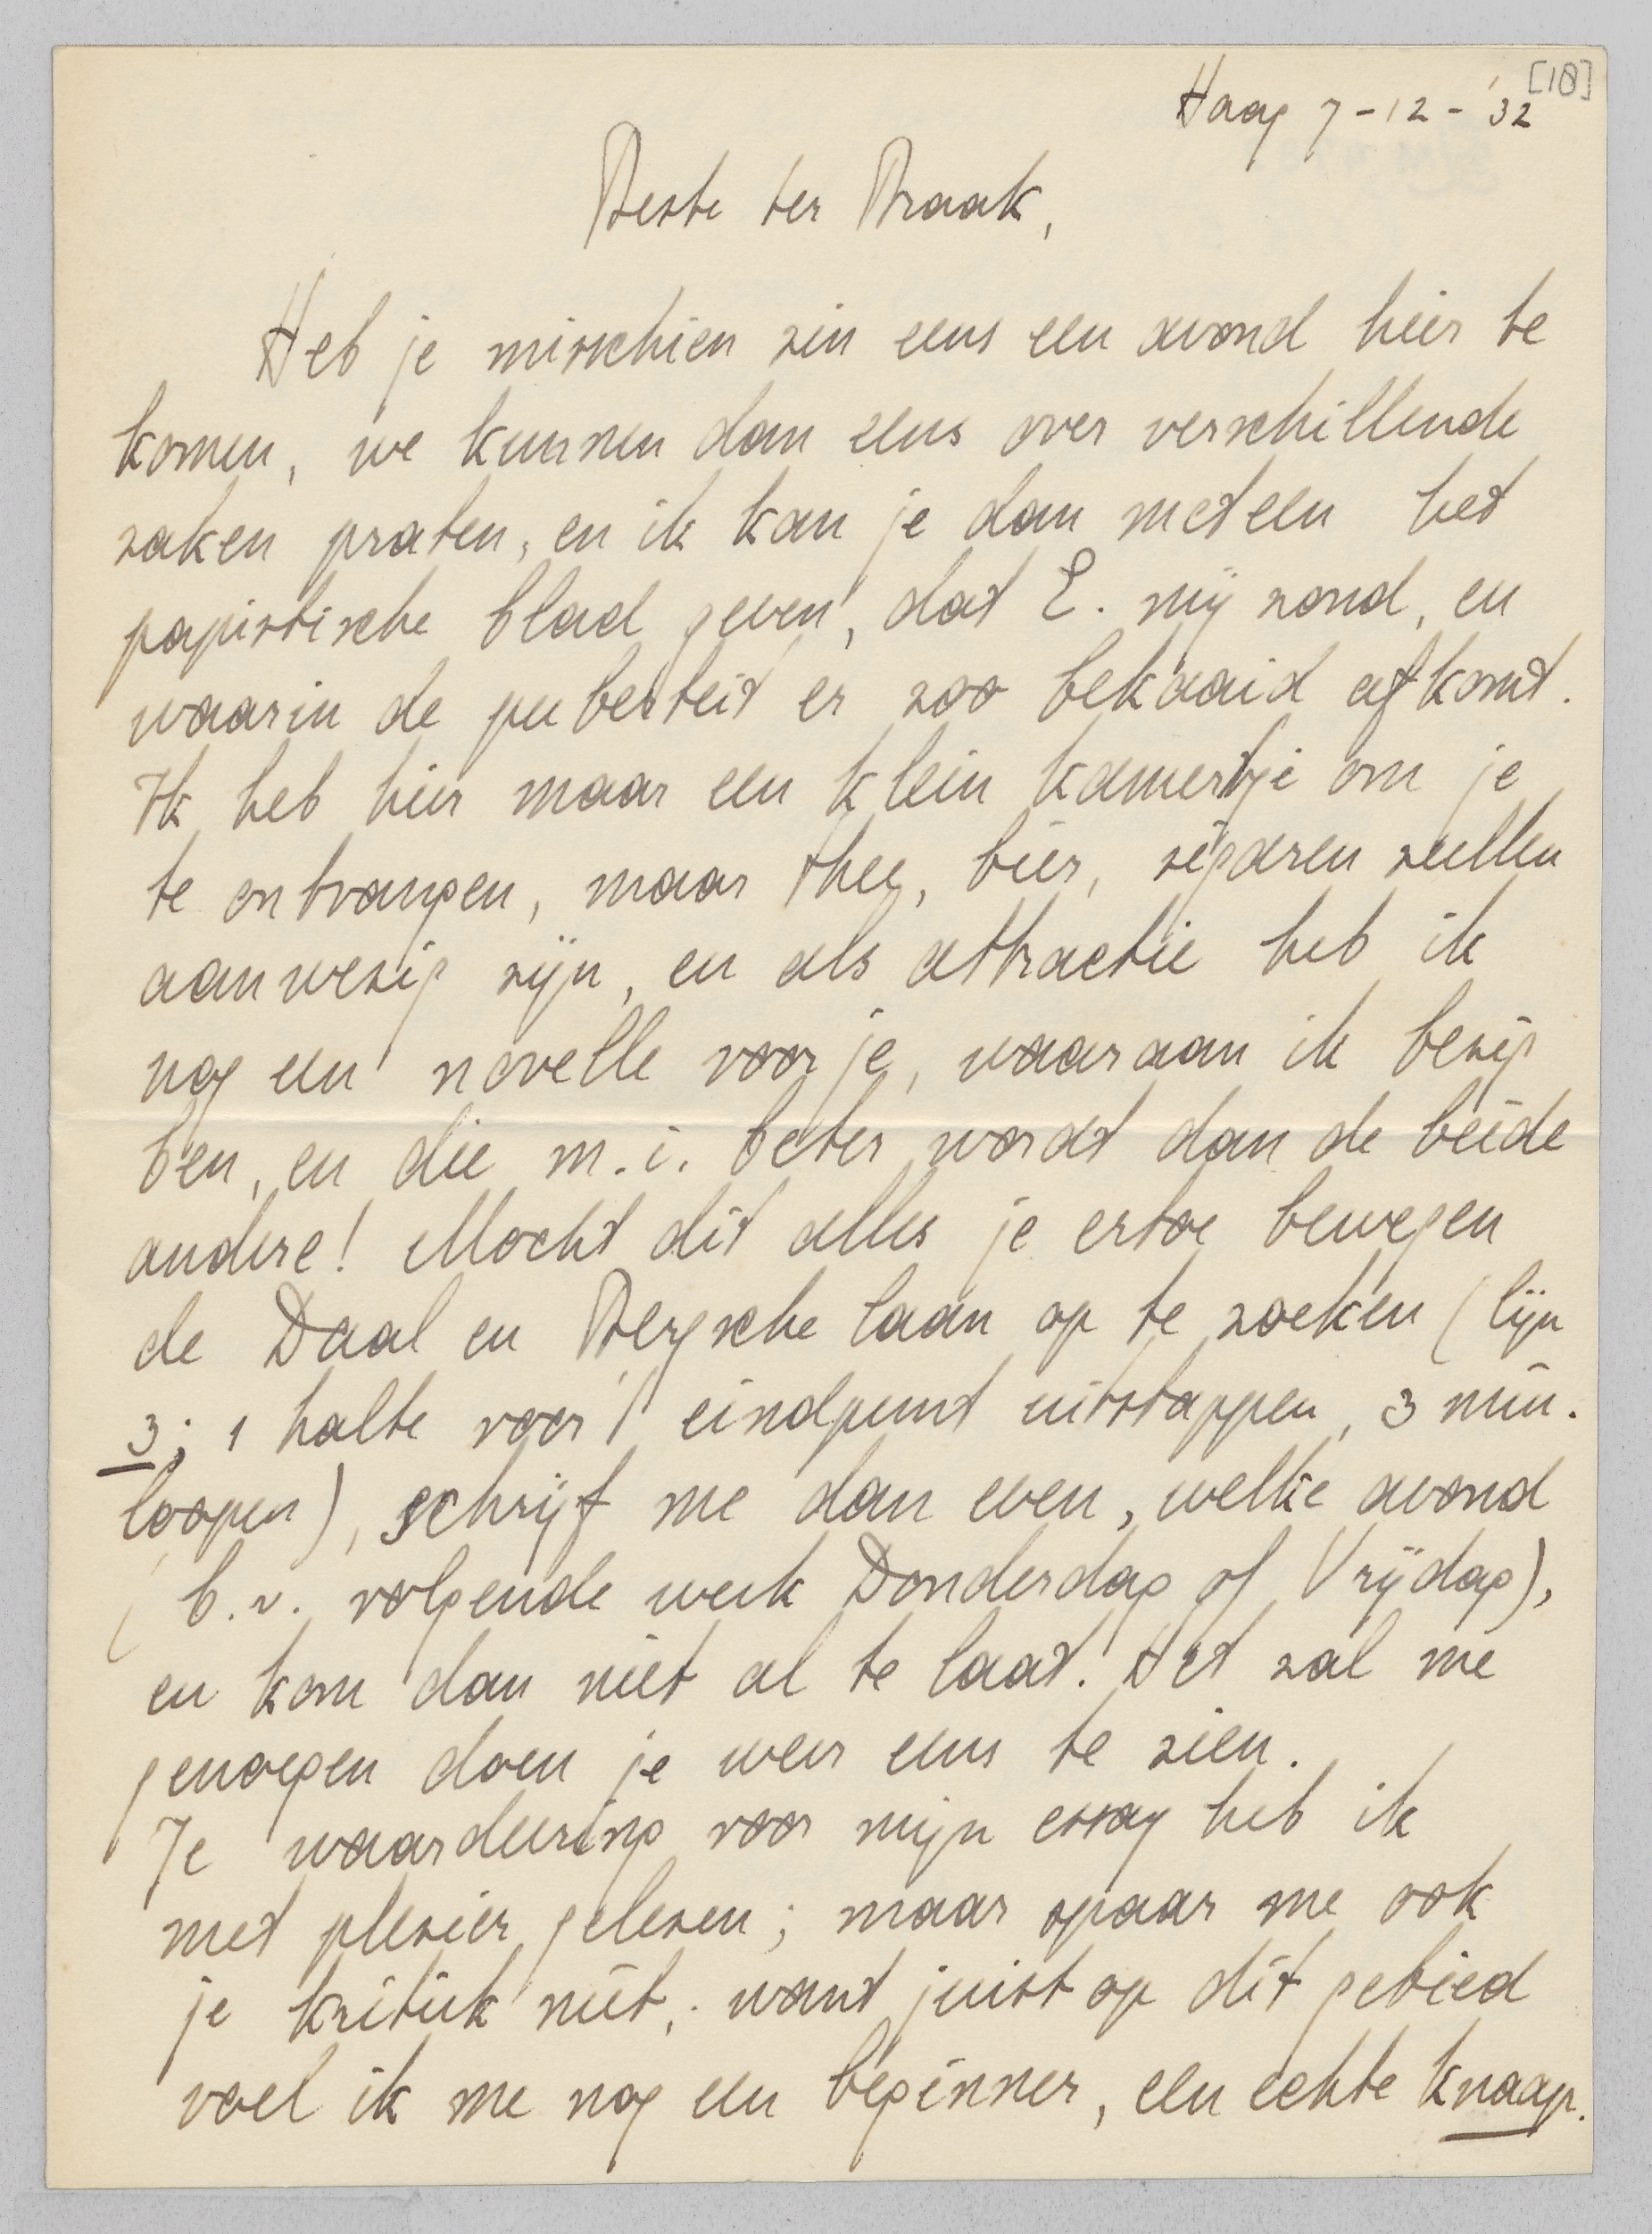 [18]
Haag 7-12-'32
Beste ter Braak,
Heb je misschien zin eens een avond hier te
komen, we kunnen dan eens over verschillende
zaken praten, en ik kan je dan meteen het
papistische blad geven, dat E. mij zond, en
waarin de puberteit er zoo bekaaid afkomt.
Ik heb hier maar een klein kamertje om je
te ontvangen, maar thee, bier, sigaren zullen
aanwezig zijn, en als attractie heb ik
nog een novelle voor je, waaraan ik bezig
ben, en die m.i. beter wordt dan de beide
andere! Mocht dit alles je ertoe bewegen
de Daal en Bergsche laan op te zoeken (lijn
3; 1 halte voor 't eindpunt uitstappen, 3 min.
loopen), schrijf me dan even, welke avond
(b.v. volgende week Donderdag of Vrijdag),
en kom dan niet al te laat! Het zal me
genoegen doen je weer eens te zien.
Je waardeering voor mijn essay heb ik
met plezier gelezen; maar spaar me ook
je kritiek niet, want juist op dit gebied
voel ik me nog een beginner, een echte knaap.